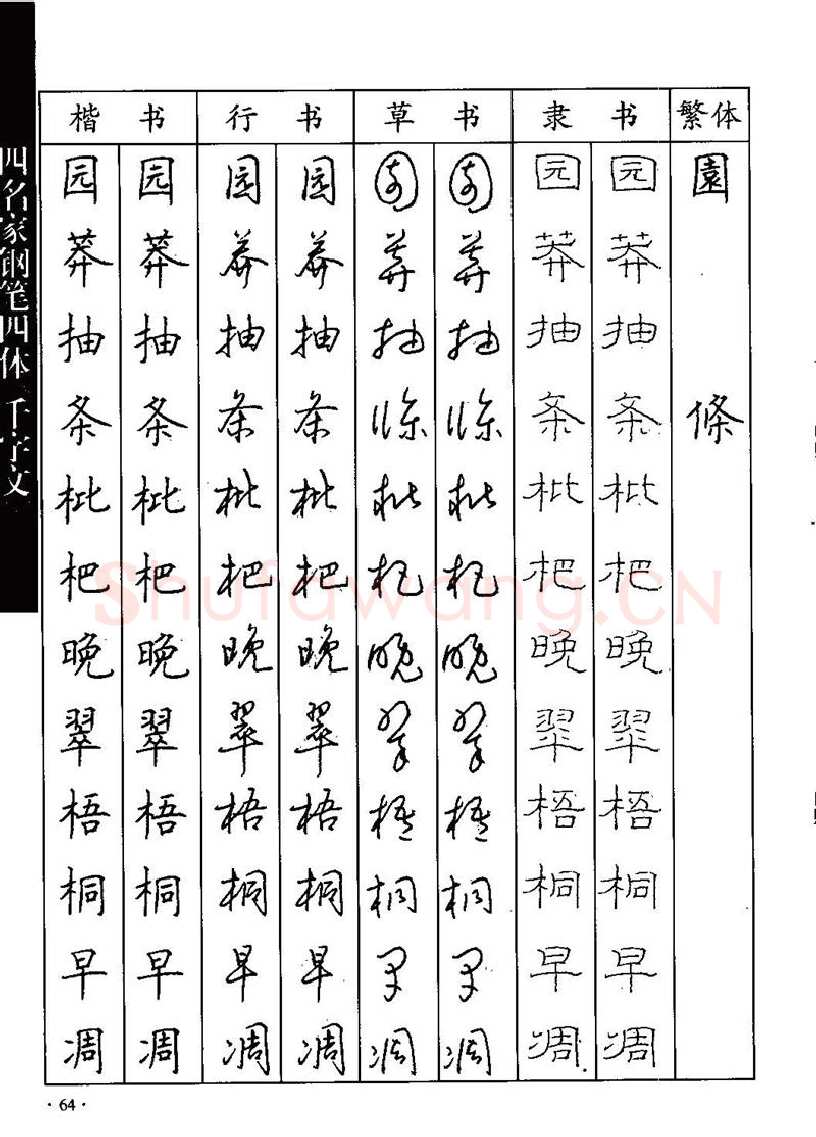 四名家钢笔四体 千字文
楷书 行书 草书 隶书 繁体
园 园 园 园 园 园 园 园 園
莽 莽 莽 莽 莽 莽 莽 莽
抽 抽 抽 抽 抽 抽 抽 抽
条 条 条 条 条 条 条 条 條
枇 枇 枇 枇 枇 枇 枇 枇
杷 杷 杷 杷 杷 杷 杷 杷
Shufawang.CN
晚 晚 晚 晚 晚 晚 晚 晚
翠 翠 翠 翠 翠 翠 翠 翠
梧 梧 梧 梧 梧 梧 梧 梧
桐 桐 桐 桐 桐 桐 桐 桐
早 早 早 早 早 早 早 早
凋 凋 凋 凋 凋 凋 凋 凋
·64·